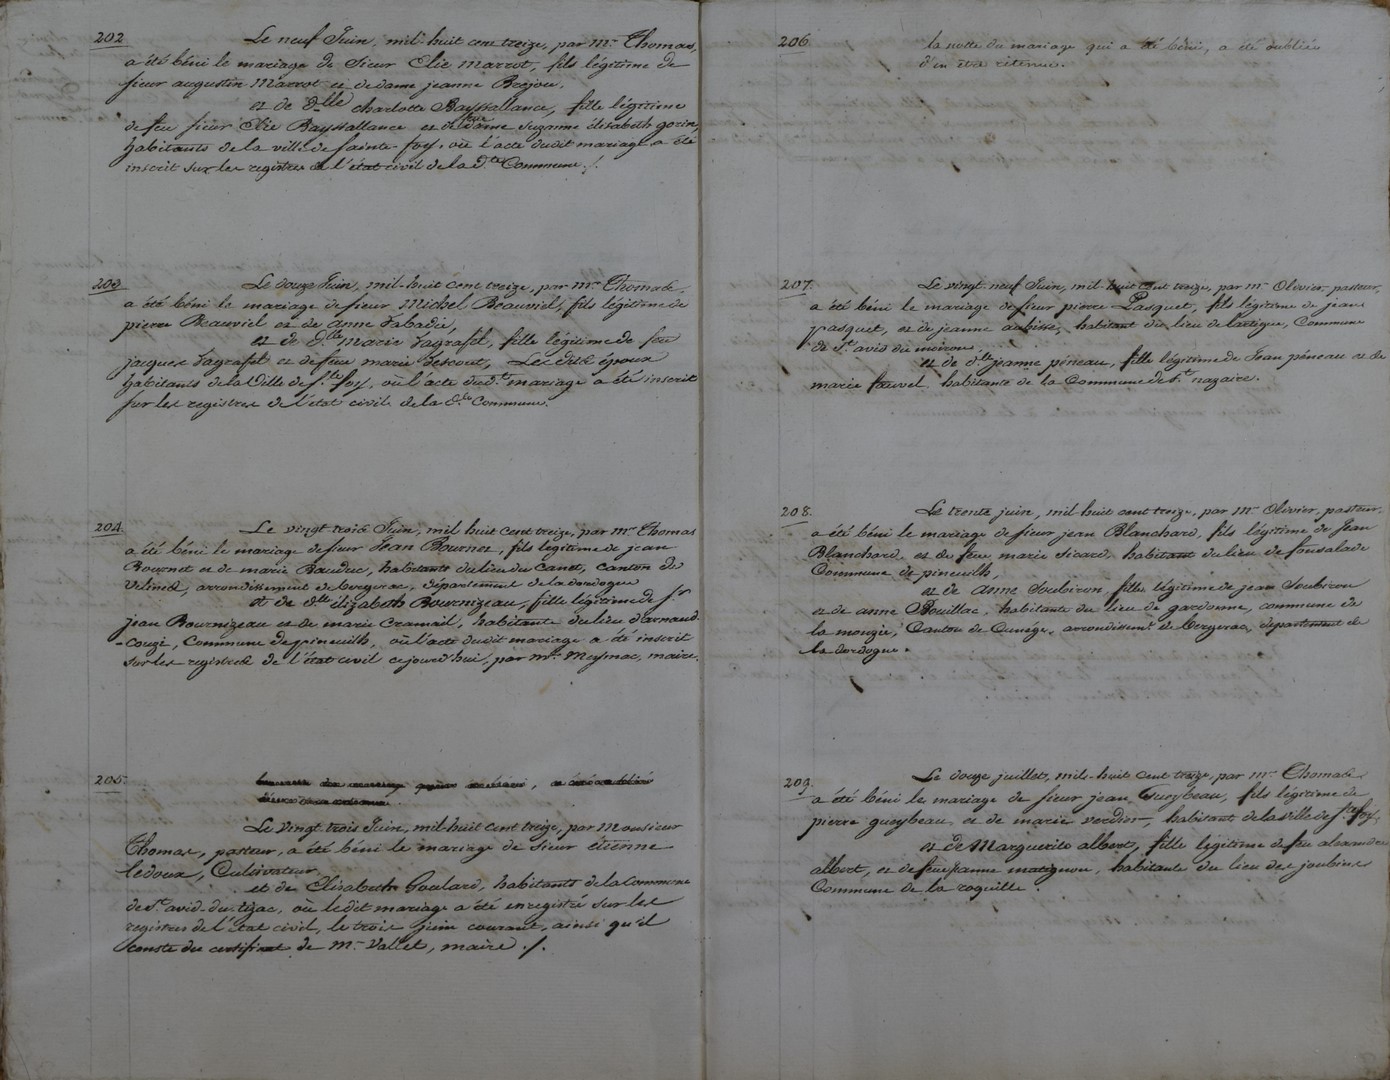 202
Le neuf Juin, mil-huit cent treize, par mr. Thomas,
a été béni le mariage de Sieur Elie Marrot, fils légitime de
sieur augustin Marrot et de dame jeanne Bréjou,
et de dlle charlotte Bayssallance, fille légitime
de feu sieur Elie Bayssallance et de feue dame suzanne élisabeth gorin,
habitants de la ville de sainte-foy, où l'acte dudit mariage a été
inscrit sur les registres de l'état civil de la dte Commune ./.
203
Le douze Juin, mil-huit cent treize, par mr Thomas,
a été béni le mariage de sieur Michel Beauviel, fils légitime de
pierre Beauviel et de anne Labadie,
et de dlle Marie Lagrafel, fille légitime de feu
jacques Lagrafel et de feue marie Descout, Les dits époux
habitants de la Ville de ste foy, où l'acte dudt mariage a été inscrit
sur les registres de l'état civil de la dte Commune.
204
Le vingt trois Juin, mil huit cent treize, par mr Thomas
a été béni le mariage de sieur Jean Bournet, fils légitime de jean
Bournet et de marie Bauduc, habitants du lieu du Canet, canton de
Vélines, arrondissement de bergerac, département de la dordogne
et de dlle élizabeth Bournizeau, fille légitime de sr
jean Bournizeau et de marie Cramail, habitante du lieu d'arnaud-
-Cougi, Commune de pineuilh, où l'acte dudit mariage a été inscrit
sur les registres de l'état civil cejourd'hui, par mr. Meymac, maire.
205
Le vingt trois Juin, mil-huit cent treize, par Monsieur
Thomas, pasteur, a été béni le mariage de sieur étienne
ledoux, Cultivateur,
et de Elisabeth Goulard, habitants de la Commune
de St. avid-du-tizac, où le dit mariage a été enregistré sur les
registres de l'état civil, le trois juin courant, ainsi qu'il
conste du certificat de Mr Vallet, maire ./.
206
la notte du mariage qui a été béni, a été oubliée
d'en être retenue.
207
Le vingt neuf Juin, mil-huit cent treize, par mr Olivier pasteur,
a été béni le mariage de sieur pierre Pasquet, fils légitime de jean
pasquet, et de jeanne aubisse, habitant du lieu de lartigue, Commune
de St. avid du moiron.
et de dlle jeanne péneau, fille légitime de Jean péneau et de
marie fauvel habitante de la Commune de St. nazaire.
208.
Le trente juin, mil-huit cent treize, par mr Olivier, pasteur
a été béni le mariage de sieur jean Blanchard, fils légitime de Jean
Blanchard, et de feue marie sicard, habitant du lieu de fonsalade
Commune de pineuilh,
et de anne Soubiron fille légitime de jean Soubiron
et de anne Bouillac, habitante du lieu de gardonne, commune de
la mongie, Canton de Cunége, arrondissemt. de bergerac, département de
la dordogne.
209.
Le douze juillet, mil-huit cent treize, par mr Thomas
a été béni le mariage de sieur jean Gueybeau, fils légitime de
pierre gueybeau, et de marie verdier, habitant de la Ville de ste foy,
et de Marguerite albert, fille légitime de feu alexandre
albert, et de feue jeanne matignon, habitante du lieu des joubins
Commune de la roquille.